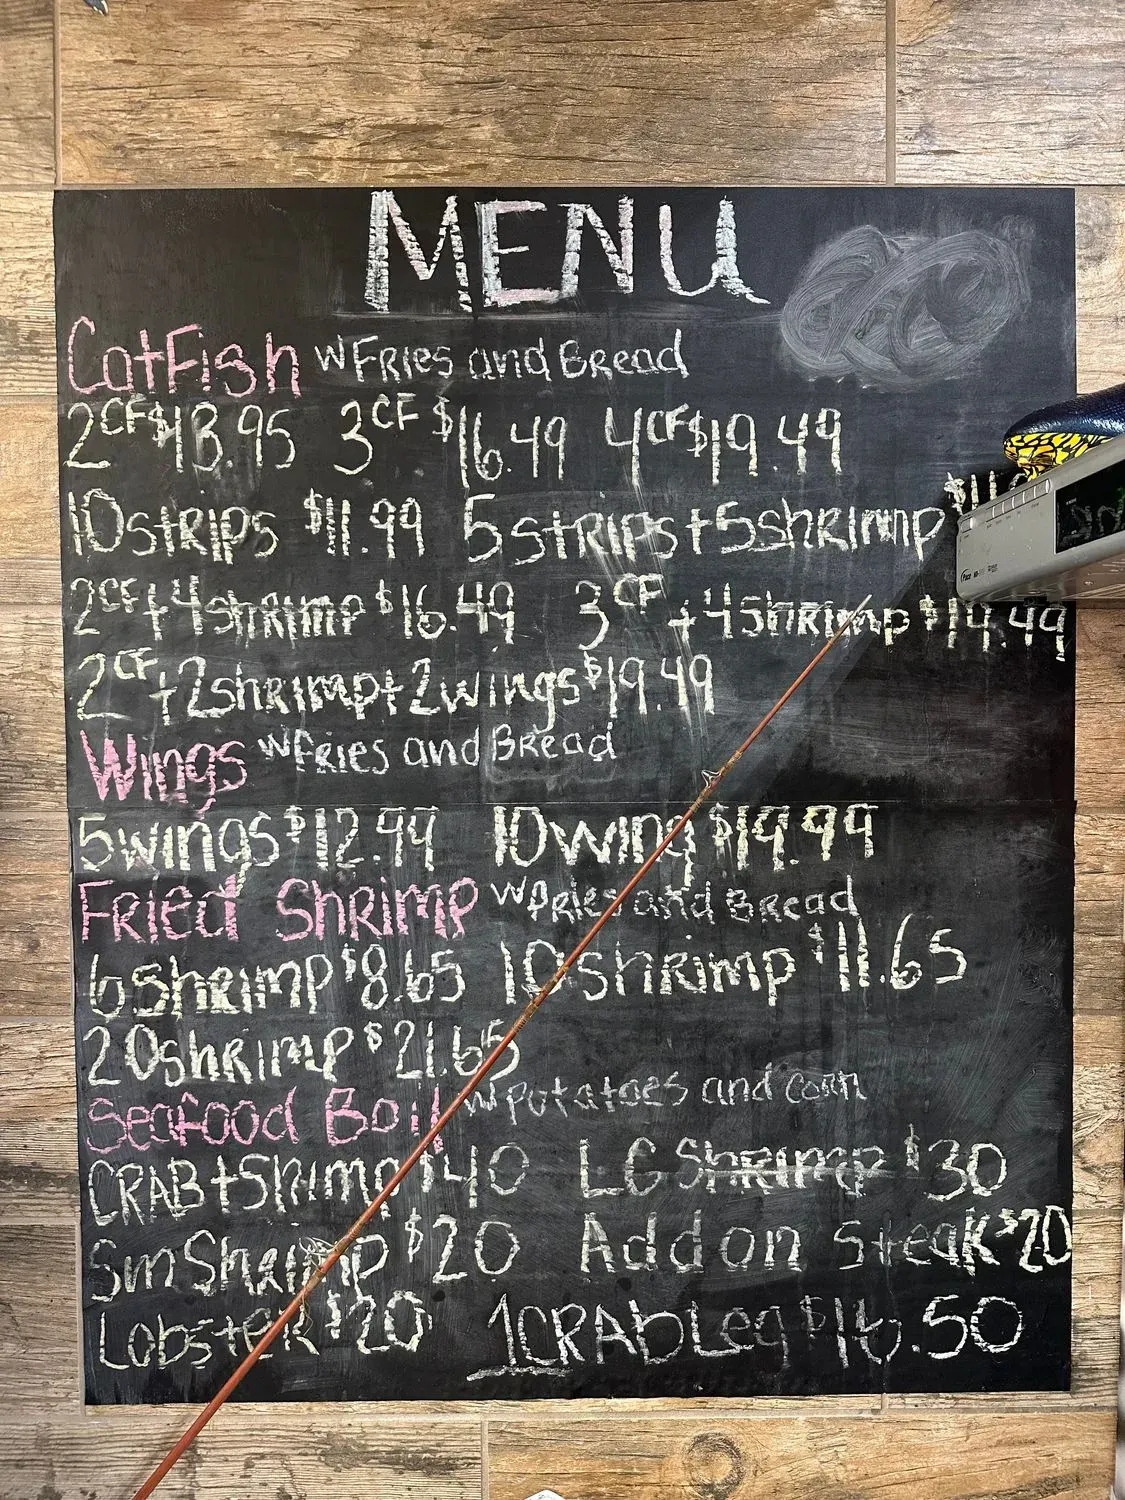 MENU
CatFish w Fries and Bread
2 CF $13.95 3 CF $16.49 4 CF $19.49
10 strips $11.99 5 strips + 5 shrimp
2 CF + 4 shrimp $16.49 3 CF + 4 Shrimp $19.49
2 CF + 2 shrimp + 2 wings $19.49
Wings w Fries and Bread
5 wings $12.99 10 wing $19.99
Fried Shrimp w Fries and Bread
6 shrimp $8.65 10 shrimp $11.65
20 shrimp $21.65
Seafood Boil w Potatoes and corn
CRAB + Shrimp $40 LG Shrimp $30
Sm Shrimp $20 Add on Steak $20
Lobster $20 1 CRAb Leg $16.50
Pace